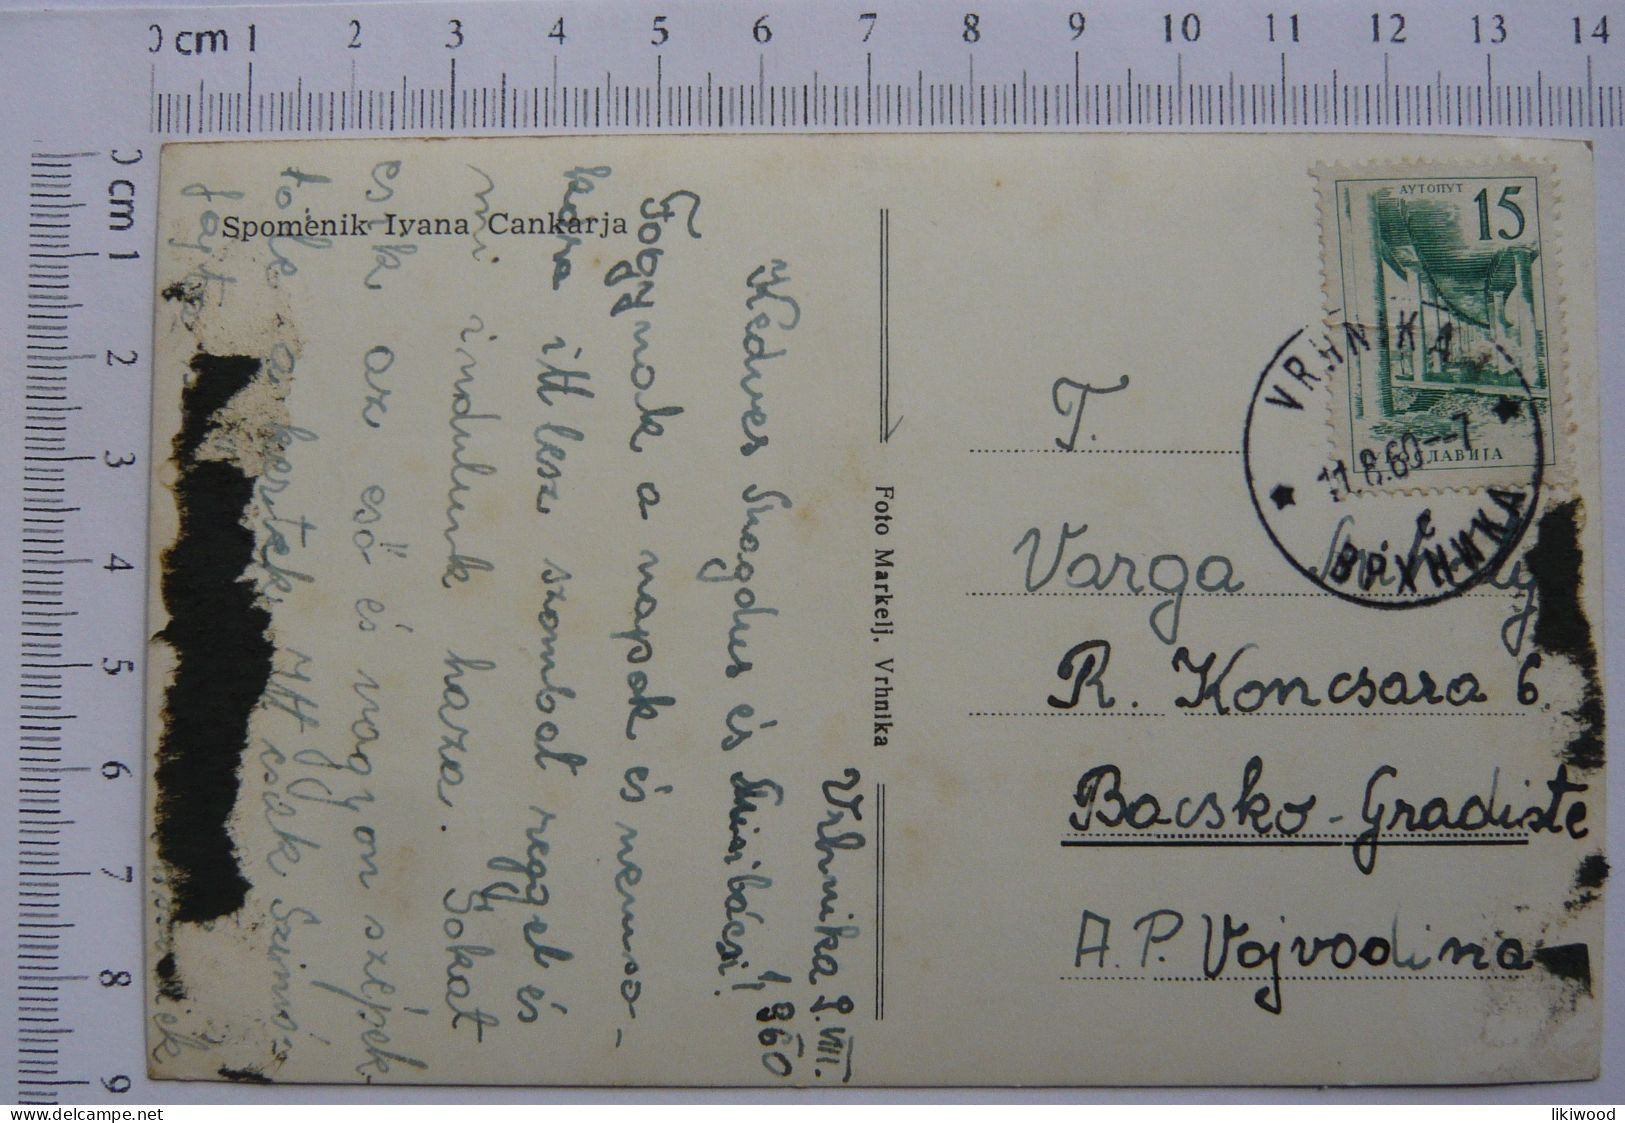 Spomenik Ivana Cankarja
Foto Markelj, Vrhnika
Vrhnika 9.VIII.
1960
Kedves Magdus és Misi bácsi!
Fogynak a napok és nemso-
kára itt lesz szombat reggel és
mi indulunk haza. Sokat
esik az eső és nagyon szépek
tőle a kertek. Itt csak
АУТОПУТ
15
ЈУГОСЛАВИЈА
VRHNIKA
11.8.60--7
ВРХНИКА
T.
Varga
R. Koncsara 6.
Bacsko-Gradiste
A.P. Vojvodina
0 cm 1 2 3 4 5 6 7 8 9 10 11 12 13 14
0 cm 1 2 3 4 5 6 7 8 9
likiwood